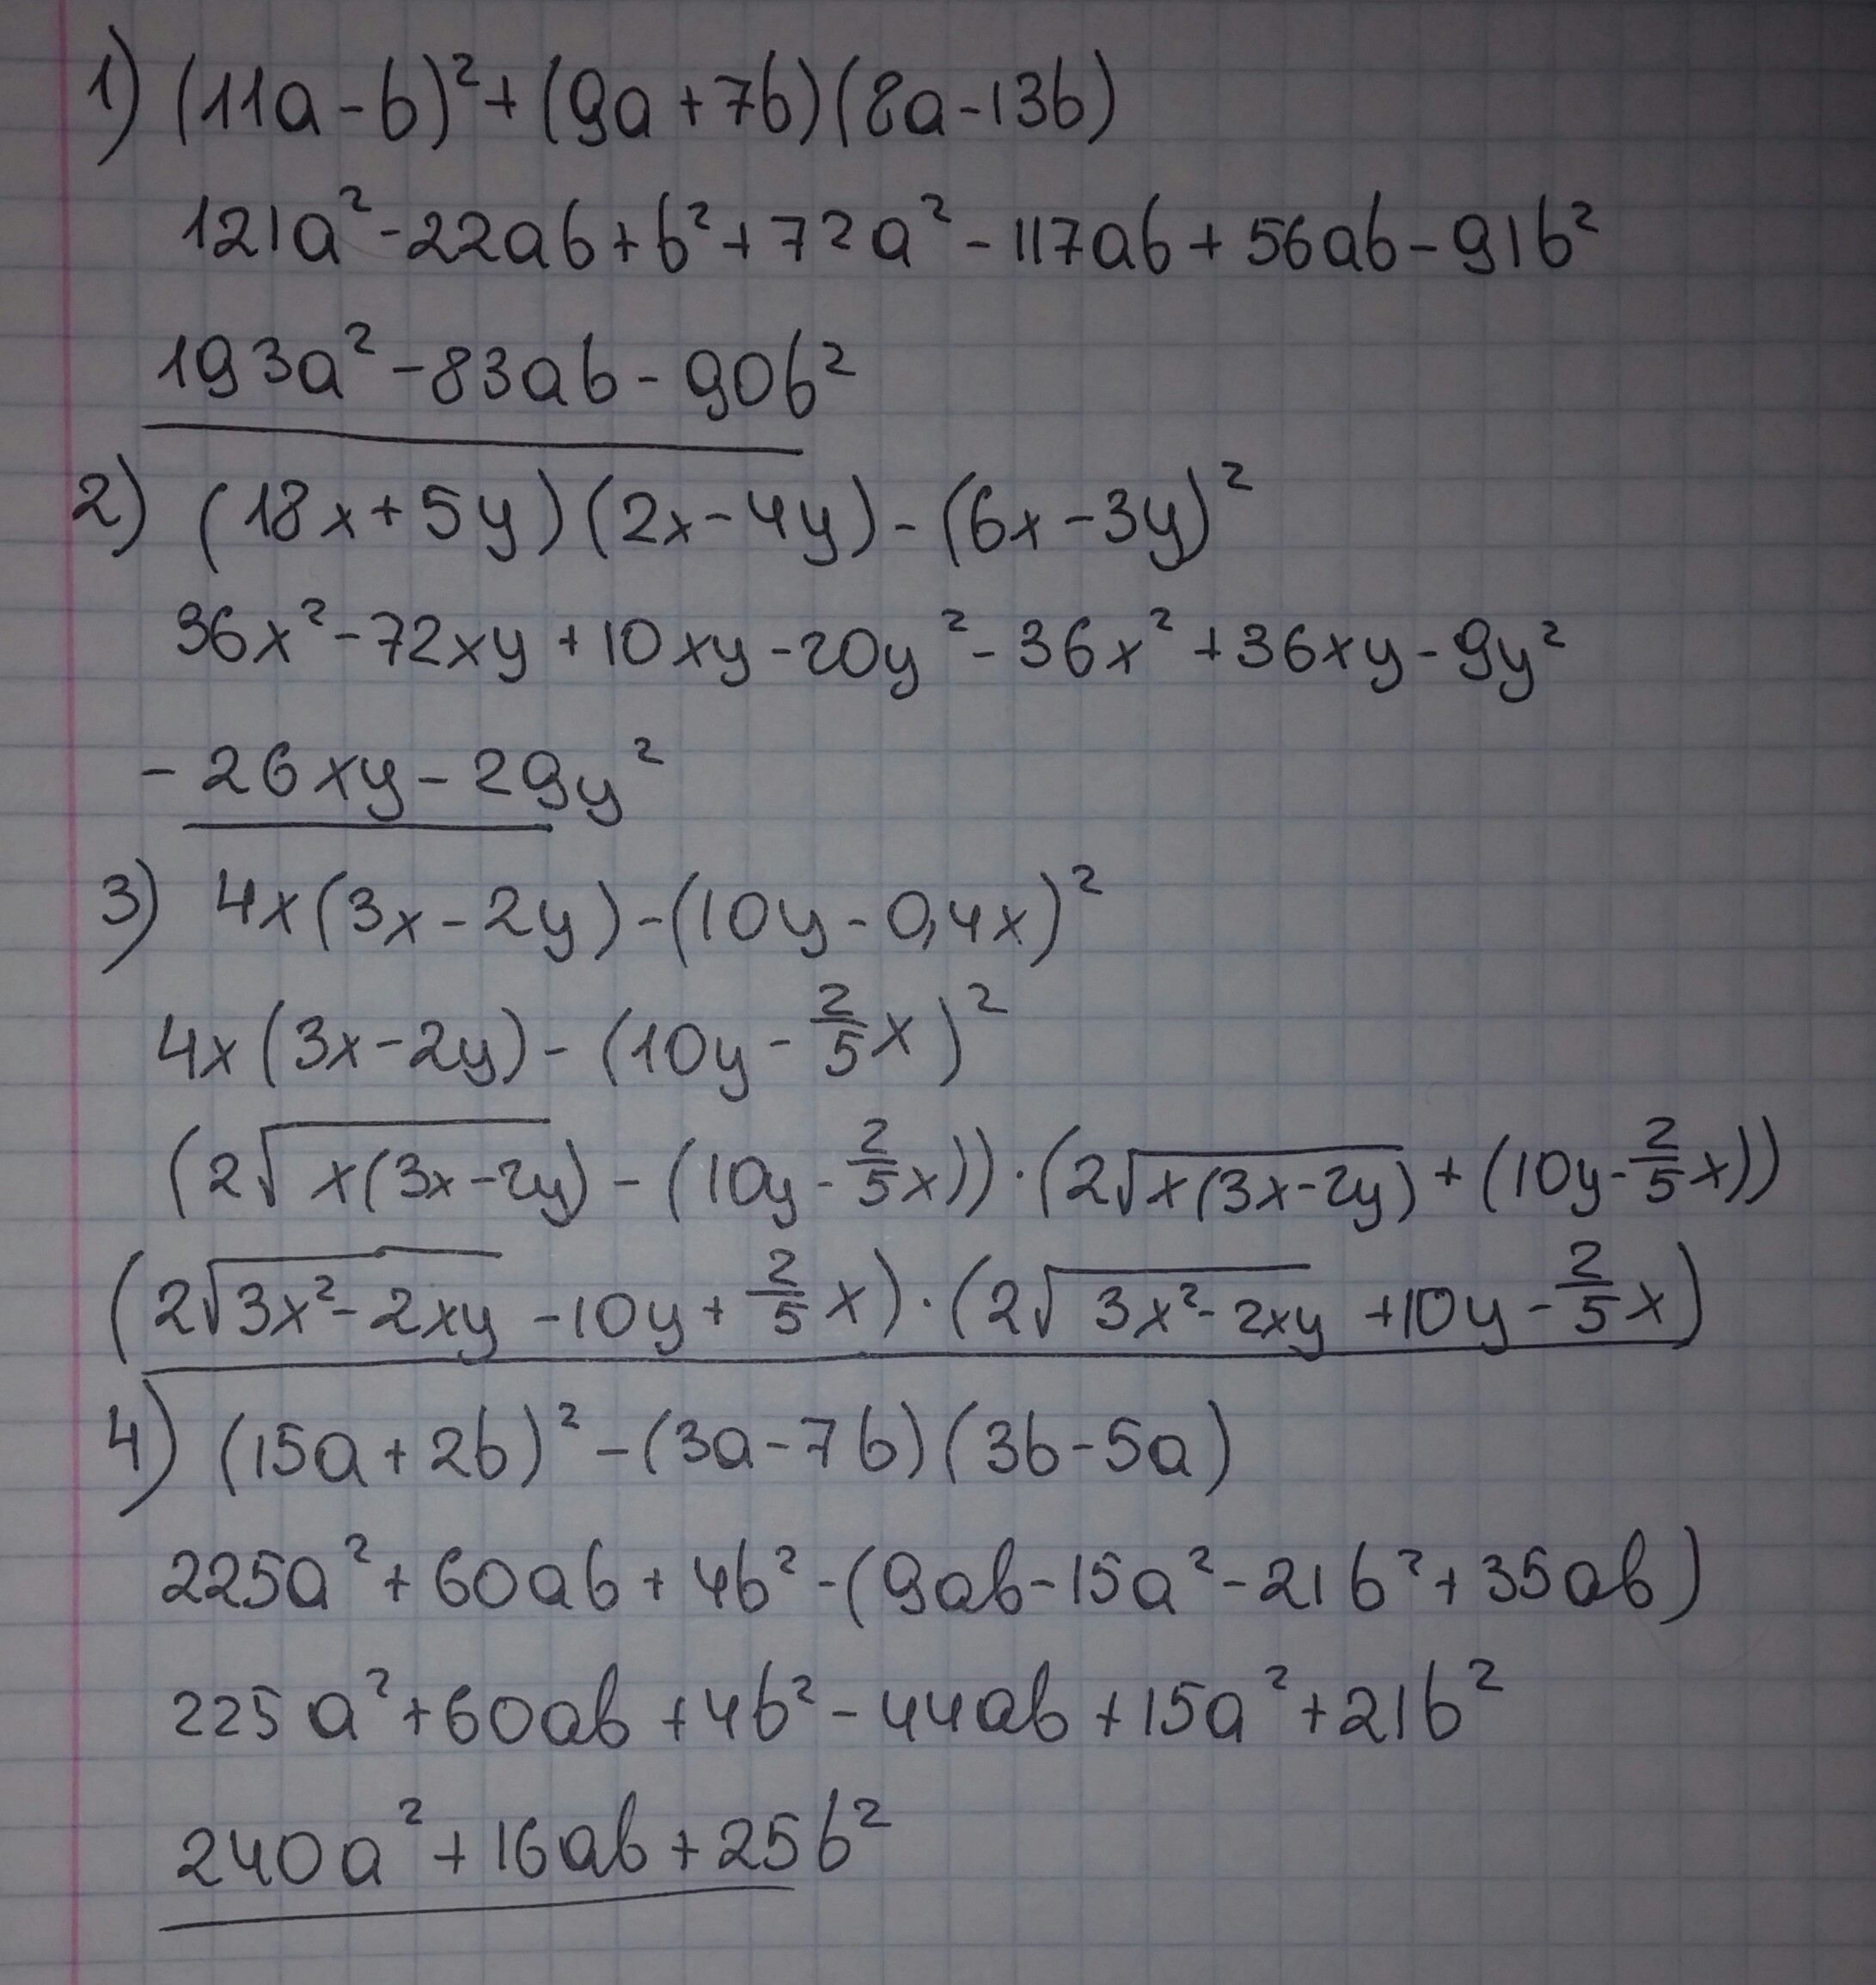 1) (11a-b)²+(9a+7b)(8a-13b)
121a²-22ab+b²+72a²-117ab+56ab-91b²
193a²-83ab-90b²
2) (18x+5y)(2x-4y)-(6x-3y)²
36x²-72xy+10xy-20y²-36x²+36xy-9y²
-26xy-29y²
3) 4x(3x-2y)-(10y-0,4x)²
4x(3x-2y)-(10y-2/5x)²
(2√x(3x-2y)-(10y-2/5x))·(2√x(3x-2y)+(10y-2/5x))
(2√3x²-2xy-10y+2/5x)·(2√3x²-2xy+10y-2/5x)
4) (15a+2b)²-(3a-7b)(3b-5a)
225a²+60ab+4b²-(9ab-15a²-21b²+35ab)
225a²+60ab+4b²-44ab+15a²+21b²
240a²+16ab+25b²